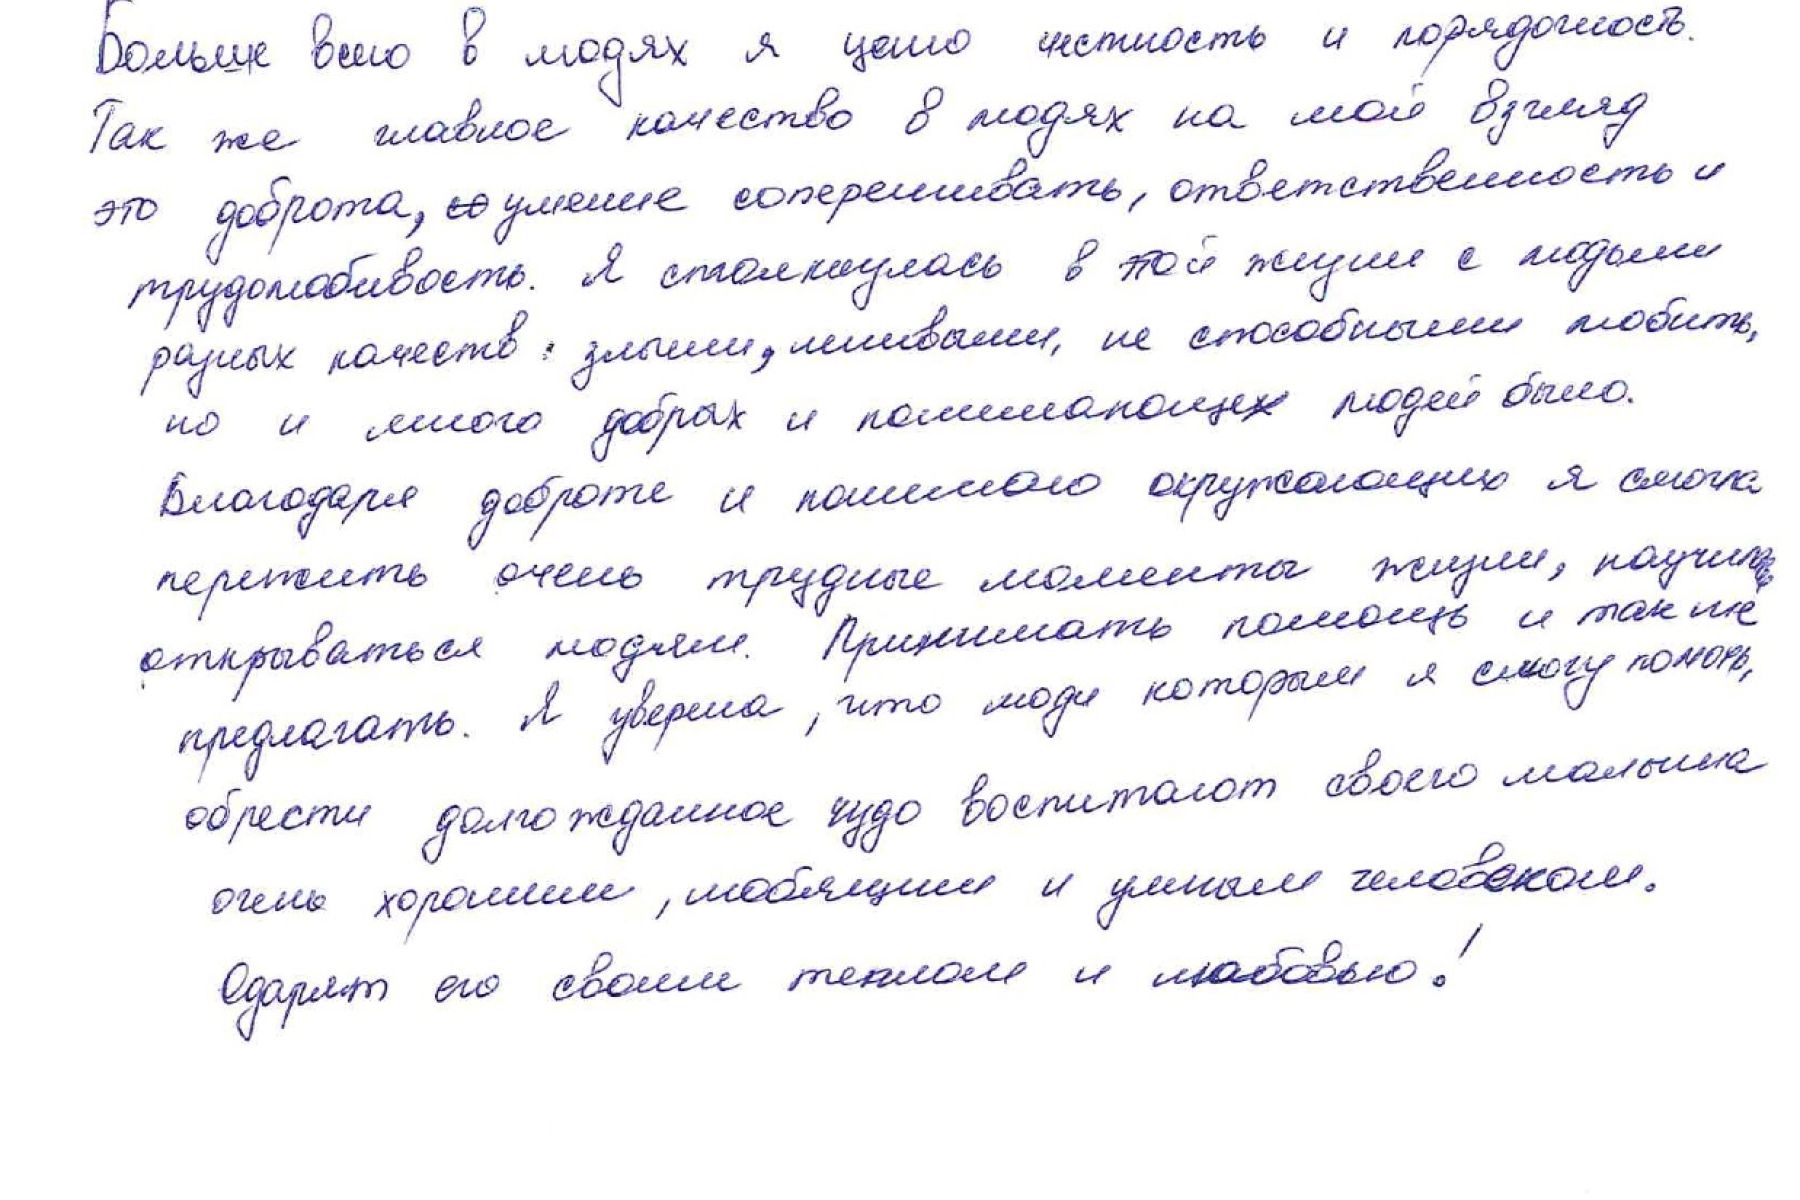 Больше всего в людях я ценю честность и порядочность.
Так же главное качество в людях на мой взгляд
это доброта, умение сопереживать, ответственность и
трудолюбивость. Я столкнулась в этой жизни с людьми
разных качеств: злыми, лживыми, не способными любить,
но и много добрых и понимающих людей было.
Благодаря доброте и окружающих я смогла
пережить очень трудные моменты жизни, научилась
открываться людям. Принимать помощь и так же
предлагать. Я уверена, что люди которым я смогу помочь,
обрести долгожданное чудо воспитают своего малыша
очень хорошим, любящим и умным человеком.
Одарят его своим теплом и любовью!